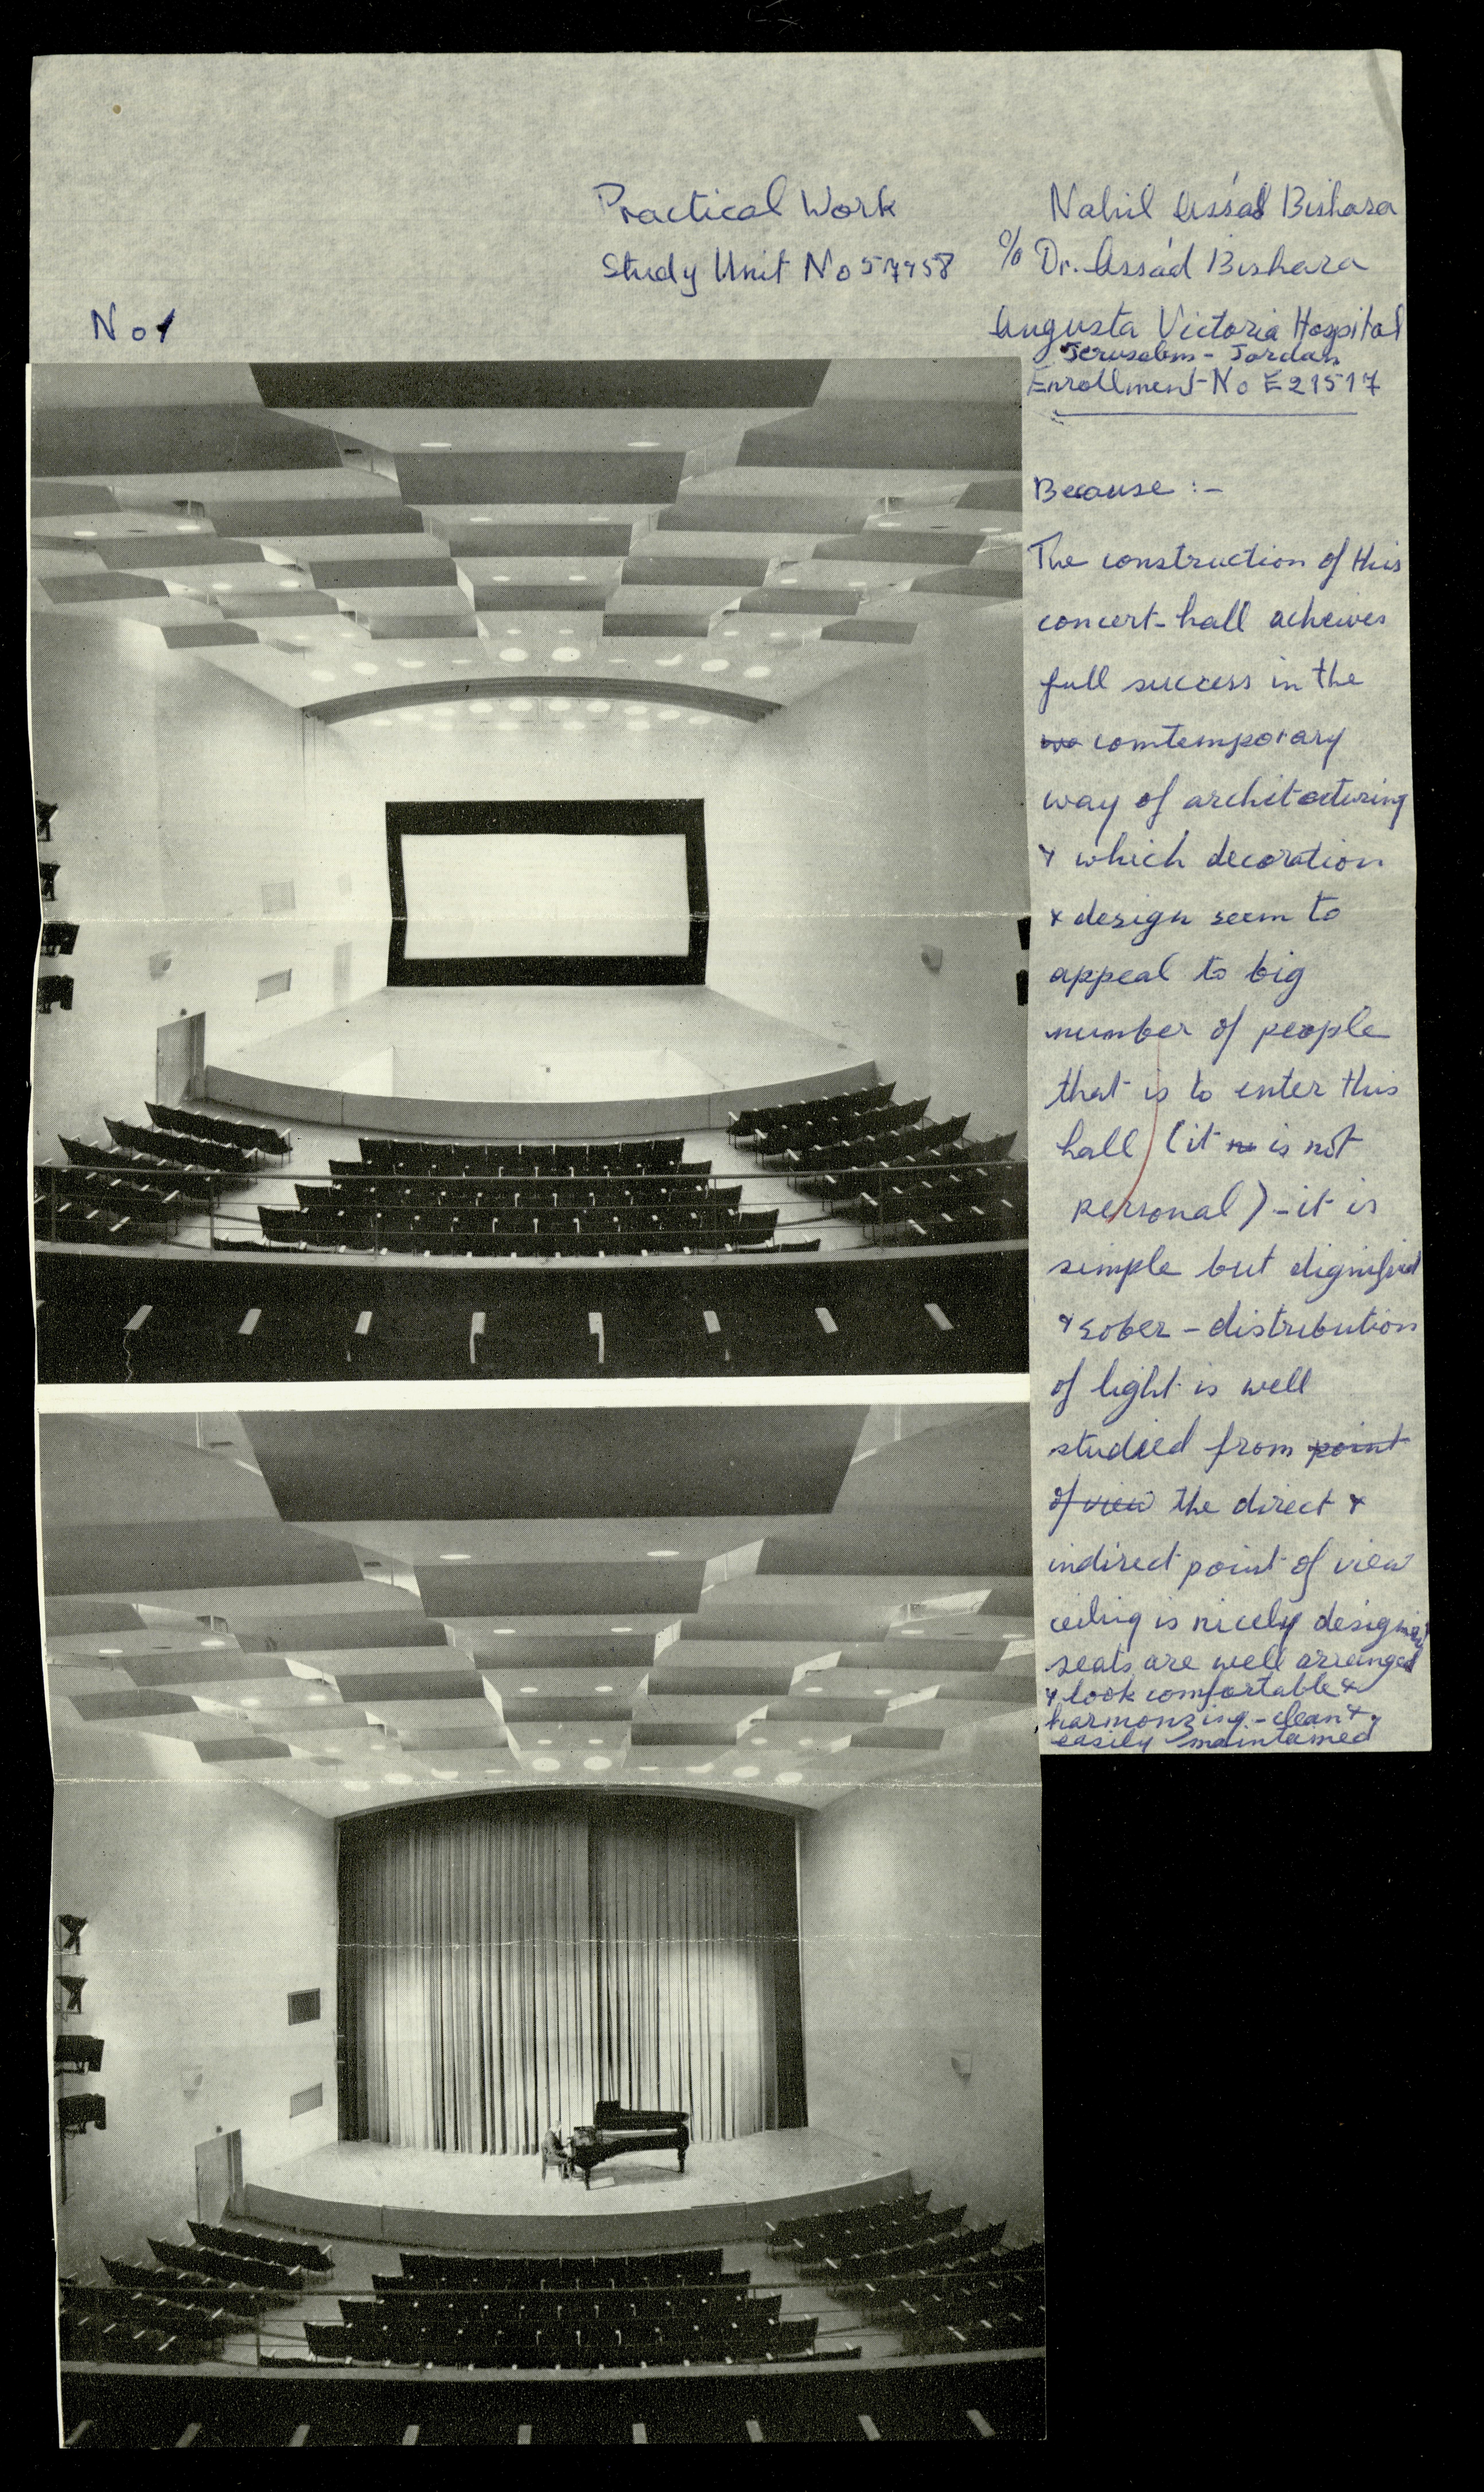 Practical Work
Study Unit No 57458
No 1
Nahil Assád Bishara
c/o Dr. Assád Bishara
Augusta Victoria Hospital
Jerusalem - Jordan
Enrollment-No E21517
Because :-
The construction of this
concert-hall acheives
full success in the
comtemporary
way of architecturing
& which decoration
& design seem to
appeal to big
number of people
that is to enter this
hall (it is not
personal) - it is
simple but dignified
& sober - distribution
of light is well
studied from point
of view the direct &
indirect point of view
ceiling is nicely designed
seats are well arranged
& look comfortable &
harmonzing - clean &
easily maintained